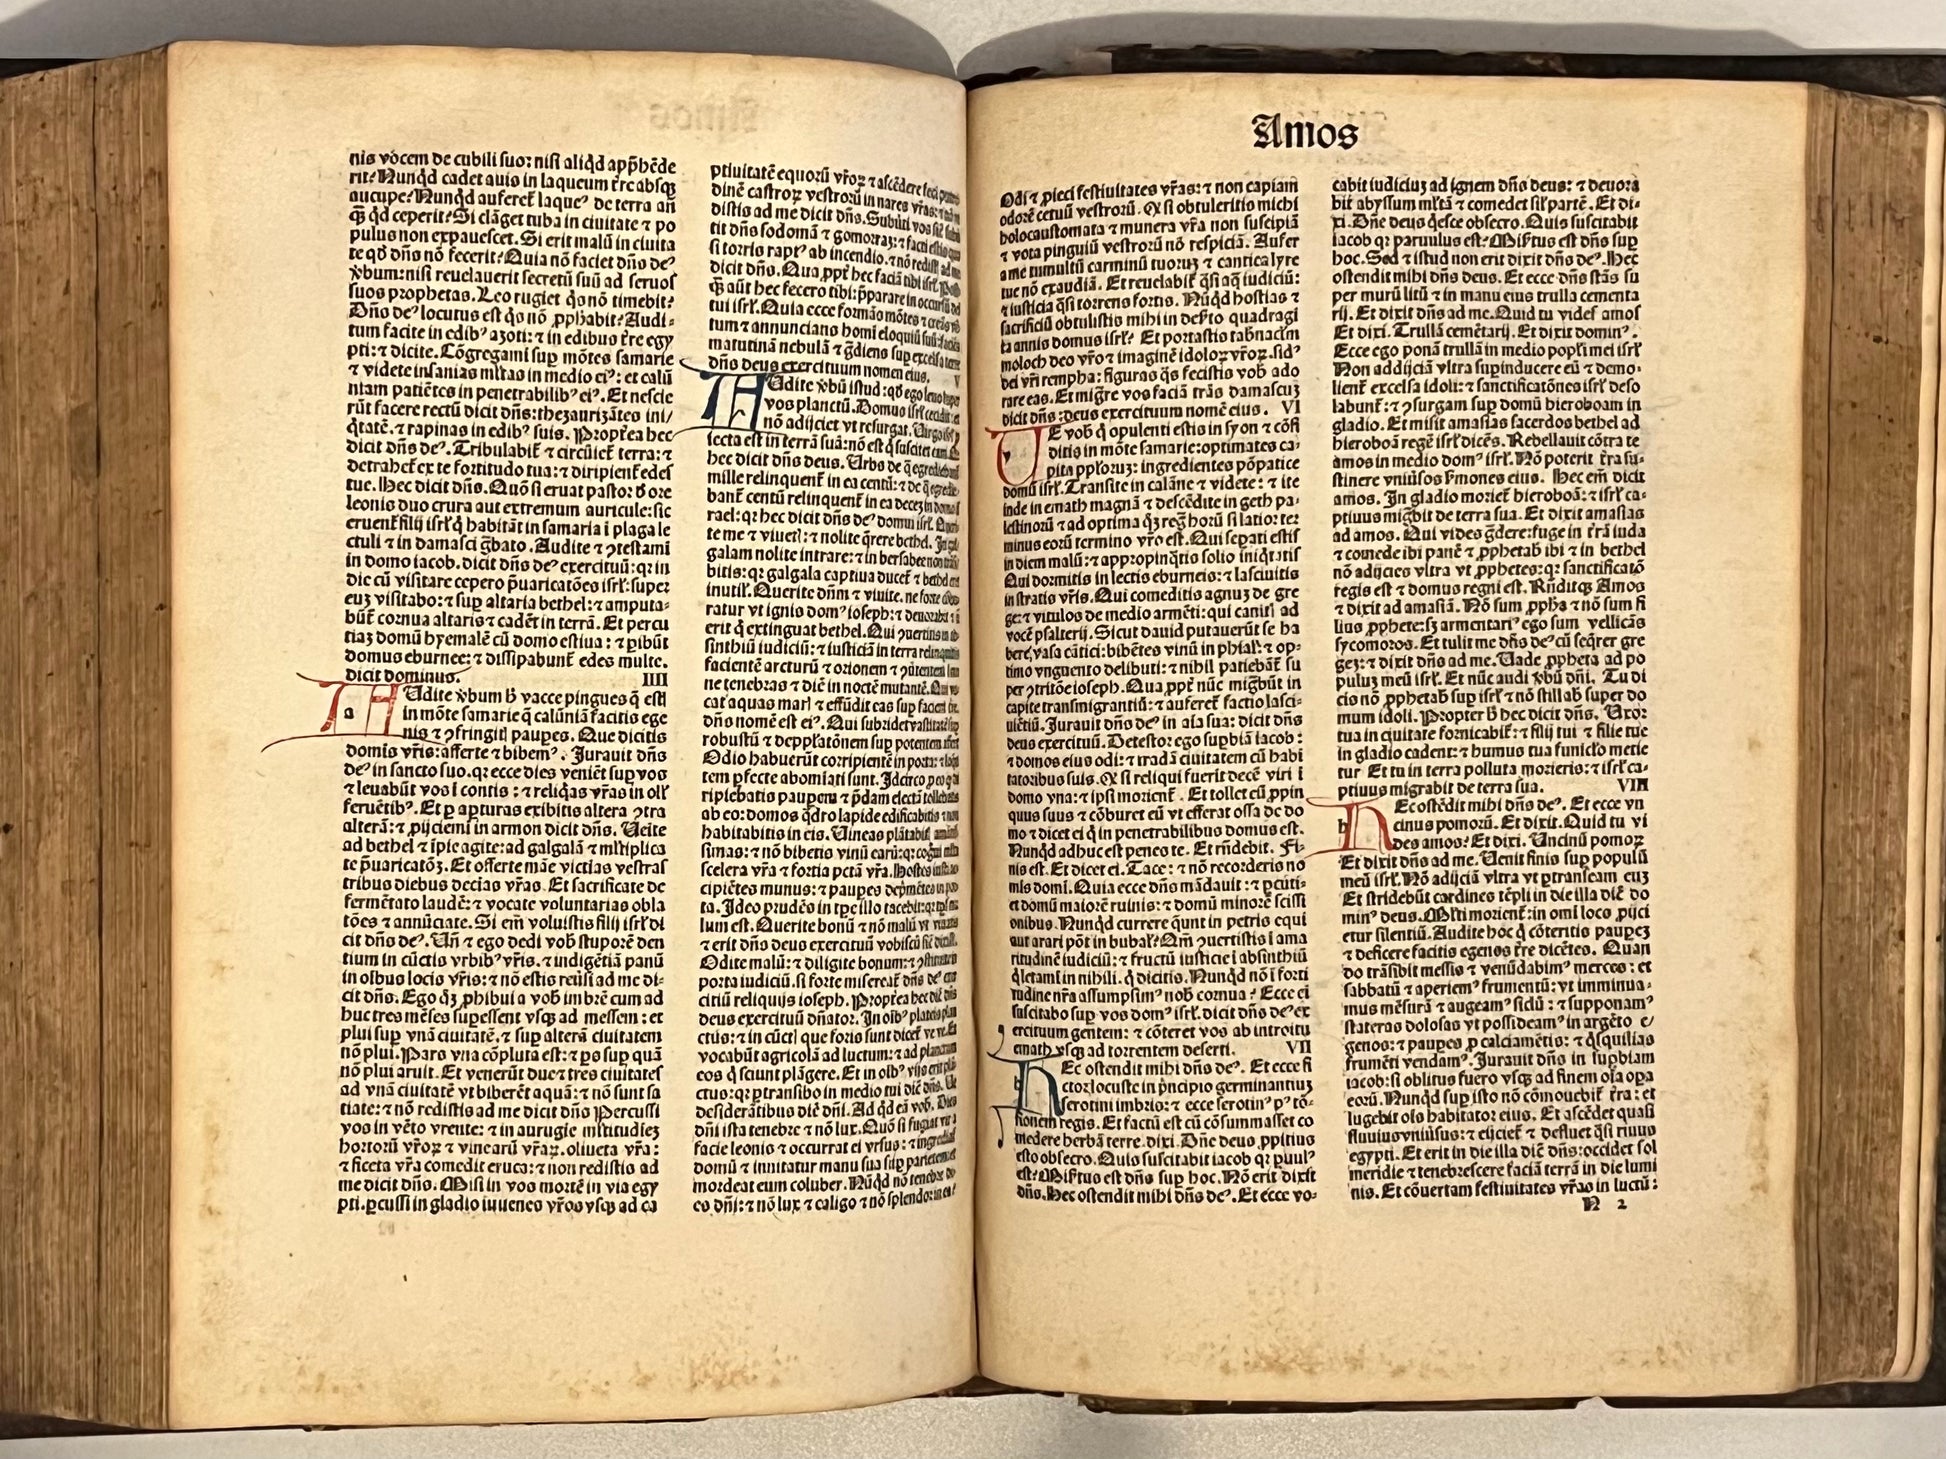 nis vocem de cubili suo: nisi aliqd app̄hēde
rit? Nunqd cadet auis in laqueum tr̄e absqꝫ
aucupe? Nunqd auferet̄ laque⁹ de terra an̄
qꝫ qd ceperit? Si clāget tuba in ciuitate ⁊ po
pulus non expauescet. Si erit malū in ciuita
te qd dn̄s nō fecerit? Quia nō faciet dn̄s de⁹
v̄bum: nisi reuelauerit secretū suū ad seruos
suos prophetas. Leo rugiet qs nō timebit?
Dn̄s de⁹ locutus est qs nō ꝓphabit? Audi⸗
tum facite in edib⁹ azoti: ⁊ in edibus tr̄e egy
pti: ⁊ dicite. Cōgregamī sup mōtes samarie
⁊ videte insanias mltas in medio ei⁹: et calū
niam patiētes in penetrabilib⁹ ei⁹. Et nescie
rūt facere rectū dicit dn̄s: thezaurizātes ini/
qtatē. ⁊ rapinas in edib⁹ suis. Propt̄ea hec
dicit dn̄s de⁹. Tribulabit̄ ⁊ circūiet̄ terra: ⁊
detrahet̄ ex te fortitudo tua: ⁊ diripient̄ edes
tue. Hec dicit dn̄s. Quō si eruat pastor d̄ ore
leonis duo crura aut extremum auricule: sic
eruent̄ filij isrl̄ q̄ habitāt in samaria ī plaga le
ctuli ⁊ in damasci ḡbato. Audite ⁊ ꝯtestamī
in domo iacob. dicit dn̄s de⁹ exercituū: qꝛ in
die cū visitare cepero p̄uaricatōes isrl̄: super
euꝫ visitabo: ⁊ sup altaria bethel: ⁊ amputa⸗
būt̄ cornua altaris ⁊ cadēt in terrā. Et percu
tiaꝫ domū hyemalē cū domo estiua: ⁊ ꝑibūt
domus eburnee: ⁊ dissipabunt̄ edes multe.
dicit dominus. IIII
a
Udite v̄bum h̄ vacce pingues q̄ estī
in mōte samarie q̄ calūniā facitis ege
nis ⁊ ꝯfringitī paupes. Que dicitis
domīs vr̄is: afferte ⁊ bibem⁹. Jurauit dn̄s
de⁹ in sancto suo. qꝛ ecce dies veniēt sup vos
⁊ leuabūt vos ī contis: ⁊ reliqas vr̄as in oll̄
feruētib⁹. Et ꝑ apturas exibitis altera ꝯtra
alterā: ⁊ ꝓijciemī in armon dicit dn̄s. Uenite
ad bethel ⁊ īpie agite: ad galgalā ⁊ mltiplica
te p̄uaricatōꝫ. Et offerte māe victīas vestras
tribus diebus decīas vr̄as. Et sacrificate de
fermētato laudē: ⁊ vocate voluntarias obla
tōes ⁊ annūciate. Si em̄ voluistis filij isrl̄ di
cit dn̄s de⁹. Un̄ ⁊ ego dedi vob̄ stuporē den
tium in cūctis vrbib⁹ vr̄is. ⁊ indigētiā panū
in oībus locis vr̄is: ⁊ nō estis reūsī ad me di⸗
cit dn̄s. Ego qꝫ ꝓhibui a vob̄ imbrē cum ad
huc tres mēses supessent vsqꝫ ad messem: et
plui sup vnā ciuitatē. ⁊ sup alterā ciuitatem
nō plui. Pars vna cōpluta est: ⁊ ꝑs sup quā
nō plui aruit. Et venerūt due ⁊ tres ciuitates
ad vnā ciuitatē vt biberēt aquā: ⁊ nō sunt sa
tiate: ⁊ nō redistis ad me dicit dn̄s Percussi
vos in vēto vrente: ⁊ in aurugīe mltitudieꝫ
hortorū vr̄oꝝ ⁊ vinearū vr̄aꝝ. oliueta vr̄a:
⁊ ficeta vr̄a comedit eruca: ⁊ non redistis ad
me dicit dn̄s. Misi in vos mortē in via egy
pti. ꝑcussi in gladio iuuenes vr̄os vsqꝫ ad ca
ptiuitatē equorū vr̄oꝝ ⁊ ascēdere feci
dinē castroꝝ vestrorū in nares vr̄as: ⁊
distis ad me dicit dn̄s. Subūti vos sic̄
tit dn̄s sodomā ⁊ gomorraꝫ: ⁊ facti estis
si torris rapt⁹ ab incendio. ⁊ nō redistī ad me
dicit dn̄s. Quaꝓpt̄ hec faciā tibi isrl̄.
qꝫ aūt hec fecero tibi: p̄parare in occursū dei
tui isrl̄. Quia ecce formās mōtes ⁊ creās
tum ⁊ annuncians homī eloquiū suū: faciēs
matutinā nebulā ⁊ gdiens sup excelsa terre
dn̄s deus exercituum nomen eius. V
Udite v̄bū istud: qd ego leuo super
vos planctū. Domus isrl̄ cecidit:
nō adijciet vt resurgat. Uirgo isrl̄
iecta est in terrā suā: nō est q̄ suscitet eam.
hec dicit dn̄s deus. Urbs de q̄ egrediebant̄
mille relinquent̄ in ea centū: ⁊ de q̄ egredie
bant̄ centū relinquent̄ in ea decem in domo
rael: qꝛ hec dicit dn̄s de⁹ domui isrl̄.
te me ⁊ viuetī: ⁊ nolite q̄rere bethel. In gal
galam nolite intrare: ⁊ in bersabee non
bitis: qꝛ galgala captiua ducet̄ ⁊ bethel erit
inutil̄. Querite dn̄m ⁊ viuite. ne forte
ratur vt ignis dom⁹ ioseph: ⁊ deuorabit ⁊
erit q̄ extinguat bethel. Qui ꝯuertitis in ab
sinthiū iudiciū: ⁊ iusticiā in terra relinquitis
facientē arcturū ⁊ orionem ⁊ ꝯūtentem
ne tenebras ⁊ diē in noctē mutantē.
cat aquas marī ⁊ effūdit eas sup faciem
dn̄s nomē est ei⁹. Qui subridet vastitatē
robustū ⁊ deppl̄atōnem sup potentem
Odio habuerūt corripientē in porta: ⁊
tem ꝑfecte abomiati sunt. Idcirco
ripiebatis pauperū ⁊ p̄dam electā
ab eo: domos qdro lapide edificabitis ⁊ non
habitabitis in eis. Uineas plātabitis
simas: ⁊ nō bibetis vinū earū: qꝛ
scelera vr̄a ⁊ fortia pctā vr̄a. Hostes
cipiētes munus: ⁊ paupes
ta. Ideo prudēs in tꝑe illo tacebit: qꝛ
lum est. Querite bonū ⁊ nō malū vt
⁊ erit dn̄s deus exercituū vobiscū
Odite malū: ⁊ diligite bonum: ⁊
porta iudiciū. si forte misereat̄ dn̄s de⁹
citiū reliquijs ioseph. Propt̄ea hec dicit dn̄s
deus exercituū dn̄ator. In oīb⁹ plateis
ctus: ⁊ in cūctī que foris sunt dicet̄ ve ve. Et
vocabūt agricolā ad luctum: ⁊ ad planctum
eos q̄ sciunt plāgere. Et in oīb⁹ vijs erit
ctus: qꝛ ꝑtransibo in medio tui dicit dn̄s. Ue
desiderātibus diē dn̄i. Ad qd eā vob̄. Dies
dn̄i ista tenebre ⁊ nō lux. Quō si fugiat vir a
facie leonis ⁊ occurrat ei vrsus: ⁊ ingrediat̄
domū ⁊ innitatur manu sua sup parietem
mordeat eum coluber. Nūqd nō tenebre
es dn̄i: ⁊ nō lux ⁊ caligo ⁊ nō splendor
Amos
Odi ⁊ ꝓieci festiuitates vr̄as: ⁊ non capiam
odorē cetuū vestrorū. Qꝫ si obtuleritis michi
holocaustomata ⁊ munera vr̄a non suscipiā
⁊ vota pinguiū vestrorū nō respiciā. Aufer
a me tumultū carminū tuorum ⁊ cantica lyre
tue nō exaudiā. Et reuelabit̄ qsi aq̄ iudiciū:
⁊ iusticia qsi torrens fortis. Nūqd hostias ⁊
sacrificiū obtulistis mihi in deserto quadragī
ta annis domus isrl̄? Et portastis tabnaclm̄
moloch deo vr̄o ⁊ imaginē idoloꝝ vr̄oꝝ. sid⁹
dei vr̄i rempha: figuras qs fecistis vob̄ ado
rare eas. Et migr̄e vos faciā trās damascuꝫ
dicit dn̄s: deus exercituum nomē eius. VI
v
E vob̄ q̄ opulenti estis in syon ⁊ cōfi
ditis in mōte samarie: optimates ca⸗
pita pplorꝫ: ingredientes pōpatice
domū isrl̄. Transite in calāne ⁊ videte: ⁊ ite
inde in emath magnā ⁊ descēdite in geth pa⸗
lestinorū ⁊ ad optima qꝫ reḡ horū si latior ter
minus eorū termino vr̄o est. Qui sepati estis
in diem malū: ⁊ appropinqtis solio iniqtatis
Qui dormitis in lectis eburneis: ⁊ lasciuitis
in stratis vr̄is. Qui comeditis agnuꝫ de gre
ge: ⁊ vitulos de medio armēti: qui canitī ad
vocē psalterij. Sicut dauid putauerūt se ha
bere vasa cātici: bibētes vinū in phial̄: ⁊ op⸗
timo vnguento delibuti: ⁊ nihil patiebāt̄ su
per ꝯtritōe ioseph. Quaꝓpt̄ nūc migbūt in
capite transmigrantiū: ⁊ auferet̄ factio lasci⸗
uiētiū. Jurauit dn̄s de⁹ in aīa sua: dicit dn̄s
deus exercituū. Detestor ego supbiā iacob:
⁊ domos eius odi: ⁊ tradā ciuitatem cū habi
tatoribus suis. Qꝫ si reliqui fuerit decē viri ī
domo vna: ⁊ ipsi morient̄. Et tollet eū ꝓpin
quus suus ⁊ cōburet eū vt efferat ossa de do
mo ⁊ dicet ei q̄ in penetrabilibus domus est.
Nunqd adhuc est penes te. Et rn̄debit. Fi⸗
nis est. Et dicet ei. Tace: ⁊ nō recorderis nō
mīs domī. Quia ecce dn̄s mādauit: ⁊ ꝑcuti⸗
et domū maiorē ruinis: ⁊ domū minorē scissī
onibus. Nunqd currere q̄unt in petris equi
aut arari pōt in bubal̄? Qm̄ ꝯuertistis ī ama
ritudinē iudiciū: ⁊ fructū iusticie ī absinthiū
q̄ letamī in nihili. q̄ dicitis. Nunqd nō ī forti
tudine nr̄a assumpsim⁹ nob̄ cornua? Ecce eī
suscitabo sup vos dom⁹ isrl̄. dicit dn̄s de⁹ ex
ercituum gentem: ⁊ cōteret vos ab introitu
emath vsqꝫ ad torrentem deserti. VII
h
Ec ostendit mihi dn̄s de⁹. Et ecce fi
ctor locuste in p̄ncipio germinantiuꝫ
serotini imbris: ⁊ ecce serotin⁹ p⁹ tō⸗
sionem regis. Et factū est cū cōsummasset co
medere herbā terre. dixi. Dn̄e deus ꝓpitius
esto obsecro. Quis suscitabit iacob qꝛ puul⁹
est? Misr̄tus est dn̄s sup hoc. Nō erit dixit
dn̄s. Hec ostendit mihi dn̄s de⁹. Et ecce vo⸗
cabit iudiciuꝫ ad ignem dn̄s deus: ⁊ deuora
bit abyssum mltā ⁊ comedet sil̄ partē. Et di⸗
xi. Dn̄e deus q̄esce obsecro. Quis suscitabit
iacob qꝛ paruulus est? Misr̄tus est dn̄s sup
hoc. Sed ⁊ istud non erit dixit dn̄s de⁹. Hec
ostendit mihi dn̄s deus. Et ecce dn̄s stās su
per murū litū ⁊ in manu eius trulla cementa
rij. Et dixit dn̄s ad me. Quid tu vides amos
Et dixi. Trullā cemētarij. Et dixit domin⁹.
Ecce ego ponā trullā in medio popl̄i mei isrl̄
Non addijciā vltra supinducere eū ⁊ demo⸗
lient̄ excelsa idoli: ⁊ sanctificatōnes isrl̄ deso
labunt̄: ⁊ ꝯsurgam sup domū hieroboam in
gladio. Et misit amasias sacerdos bethel ad
hieroboā regē isrl̄ dicēs. Rebellauit cōtra te
amos in medio dom⁹ isrl̄. Nō poterit tr̄a su⸗
stinere vniūsos sermones eius. Hec em̄ dicit
amos. In gladio moriet̄ hieroboā: ⁊ isrl̄ ca⸗
ptiuus migbit de terra sua. Et dixit amasias
ad amos. Qui vides gdere: fuge in tr̄ā iuda
⁊ comede ibi panē ⁊ ꝓphetab̄ ibi ⁊ in bethel
nō adijcies vltra vt ꝓphetes: qꝛ sanctificatō
regis est ⁊ domus regni est. Rn̄ditqꝫ Amos
⁊ dixit ad amasiā. Nō sum ꝓpha ⁊ nō sum fi
lius ꝓphete: sꝫ armentari⁹ ego sum vellicās
sycomoros. Et tulit me dn̄s de⁹ cū seqrer gre
geꝫ: ⁊ dixit dn̄s ad me. Uade ꝓpheta ad po
puluꝫ meū isrl̄. Et nūc audi v̄bū dn̄i. Tu di
cis nō ꝓphetab̄ sup isrl̄ ⁊ nō stillab̄ super do
mum idoli. Propter h̄ hec dicit dn̄s. Uxor
tua in ciuitate fornicabit̄: ⁊ filij tui ⁊ filie tue
in gladio cadent: ⁊ humus tua funicl̄o metie
tur Et tu in terra polluta morieris: ⁊ isrl̄ ca⸗
ptiuus migrabit de terra sua. VIII
h
Ec ostēdit mihi dn̄s de⁹. Et ecce vn
cinus pomorū. Et dixit. Quid tu vi
des amos? Et dixi. Uncinū pomoꝝ
Et dixit dn̄s ad me. Uenit finis sup populū
meū isrl̄. Nō adijciā vltra vt ꝑtranseam euꝫ
Et stridebūt cardines tēpli in die illa dic̄ do
min⁹ deus. Mlti morient̄: in omī loco ꝓijci
etur silentiū. Audite hoc q̄ cōteritis paupeꝫ
⁊ deficere facitis egenos tr̄e dicētes. Quan
do trāsibit messis ⁊ venūdabim⁹ merces: et
sabbatū ⁊ aperiem⁹ frumentū: vt imminua⸗
mus mēsurā ⁊ augeam⁹ siclū: ⁊ supponam⁹
stateras dolosas vt possideam⁹ in argēto e/
genos: ⁊ paupes ꝑ calciamētis: ⁊ qsquilias
frumēti vendam⁹. Jurauit dn̄s in supbiam
iacob: si oblitus fuero vsqꝫ ad finem oīa opa
eorū. Nunqd sup isto nō cōmouebit̄ tr̄a: et
lugebit oīs habitator eius. Et ascēdet quasi
fluuius vniūsus: ⁊ eijciet̄ ⁊ defluet qsi riuus
egypti. Et erit in die illa dic̄ dn̄s: occidet sol
meridie ⁊ tenebrescere faciā terrā in die lumi
nis. Et cōuertam festiuitates vr̄as in luctū:
N 2